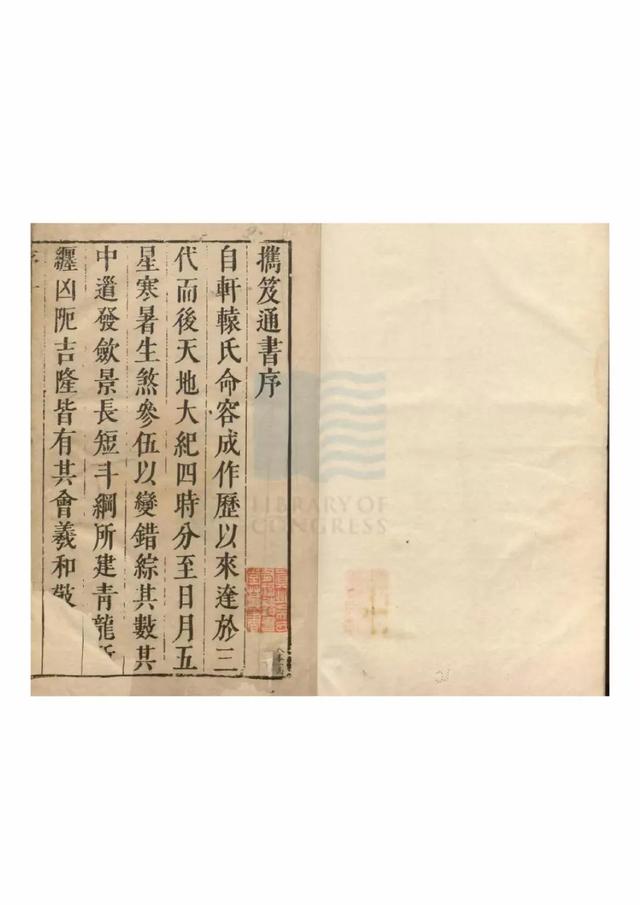 攜笈通書序
自軒轅氏命容成作歷以來逹於三
代而後天地大紀四時分至日月五
星寒暑生煞參伍以變錯綜其數其
中道發斂景長短斗綱所建青龍所
纏凶阨吉隆皆有其會羲和敬
LIBRARY OF
CONGRESS